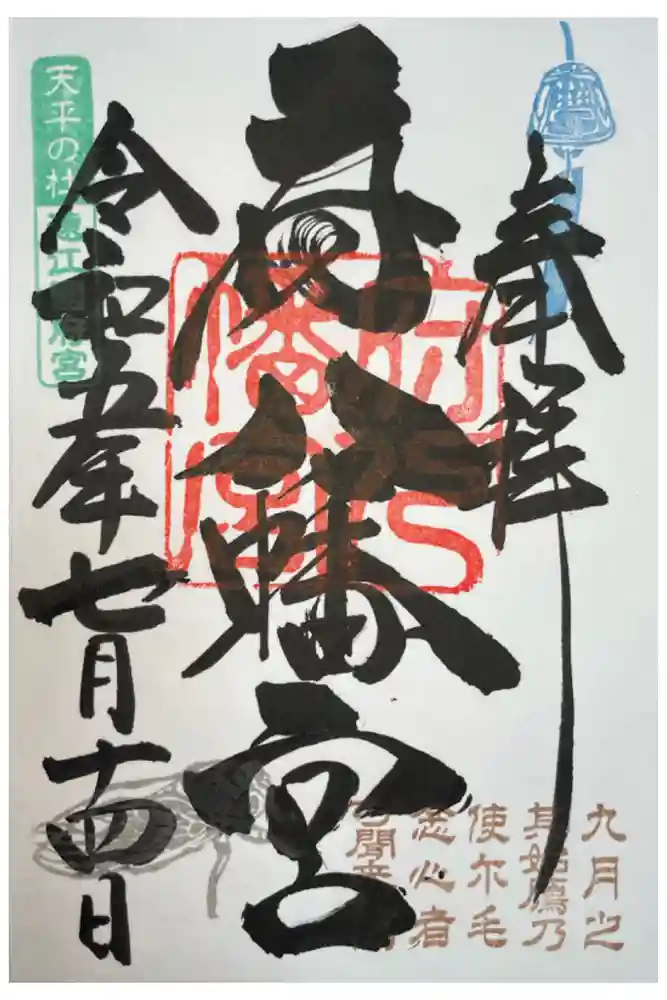 奉拝
府八幡宮
令和五年七月十四日
府八
幡宮
天平の杜 遠江国府宮
九月之
其始鴈乃
使尓毛
念心者
聞